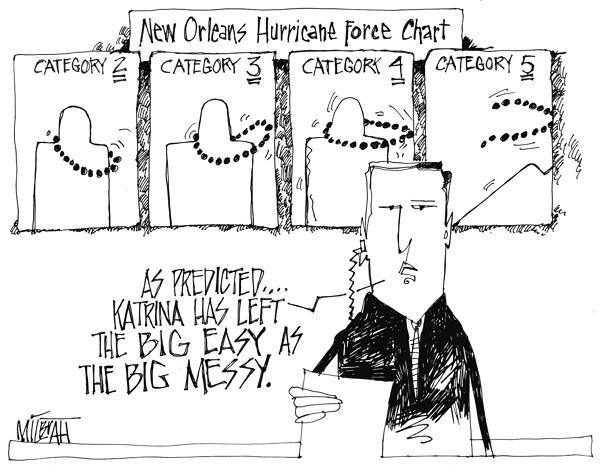 New Orleans Hurricane Force Chart
CATEGORY 2
CATEGORY 3
CATEGORY 4
CATEGORY 5
AS PREDICTED....
KATRINA HAS LEFT
THE BIG EASY AS
THE BIG MESSY.
MILBRAH